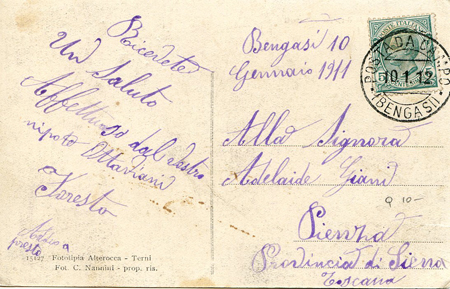 Ricevete
Un Saluto
Affettuoso dal vostro
nipote Ottaviani
Foresto
presto
15127 Fototipia Alterocca - Terni
Fot. C. Nannini - prop. ris.
Bengasi 10
Gennaio 1911
POSTE ITALIANE
POSTA DA CAMPO
10.1.12
(BENGASI)
Alla Signora
Adelaide Giani
Q 10-
Pienza
Provincia di Siena
Toscana